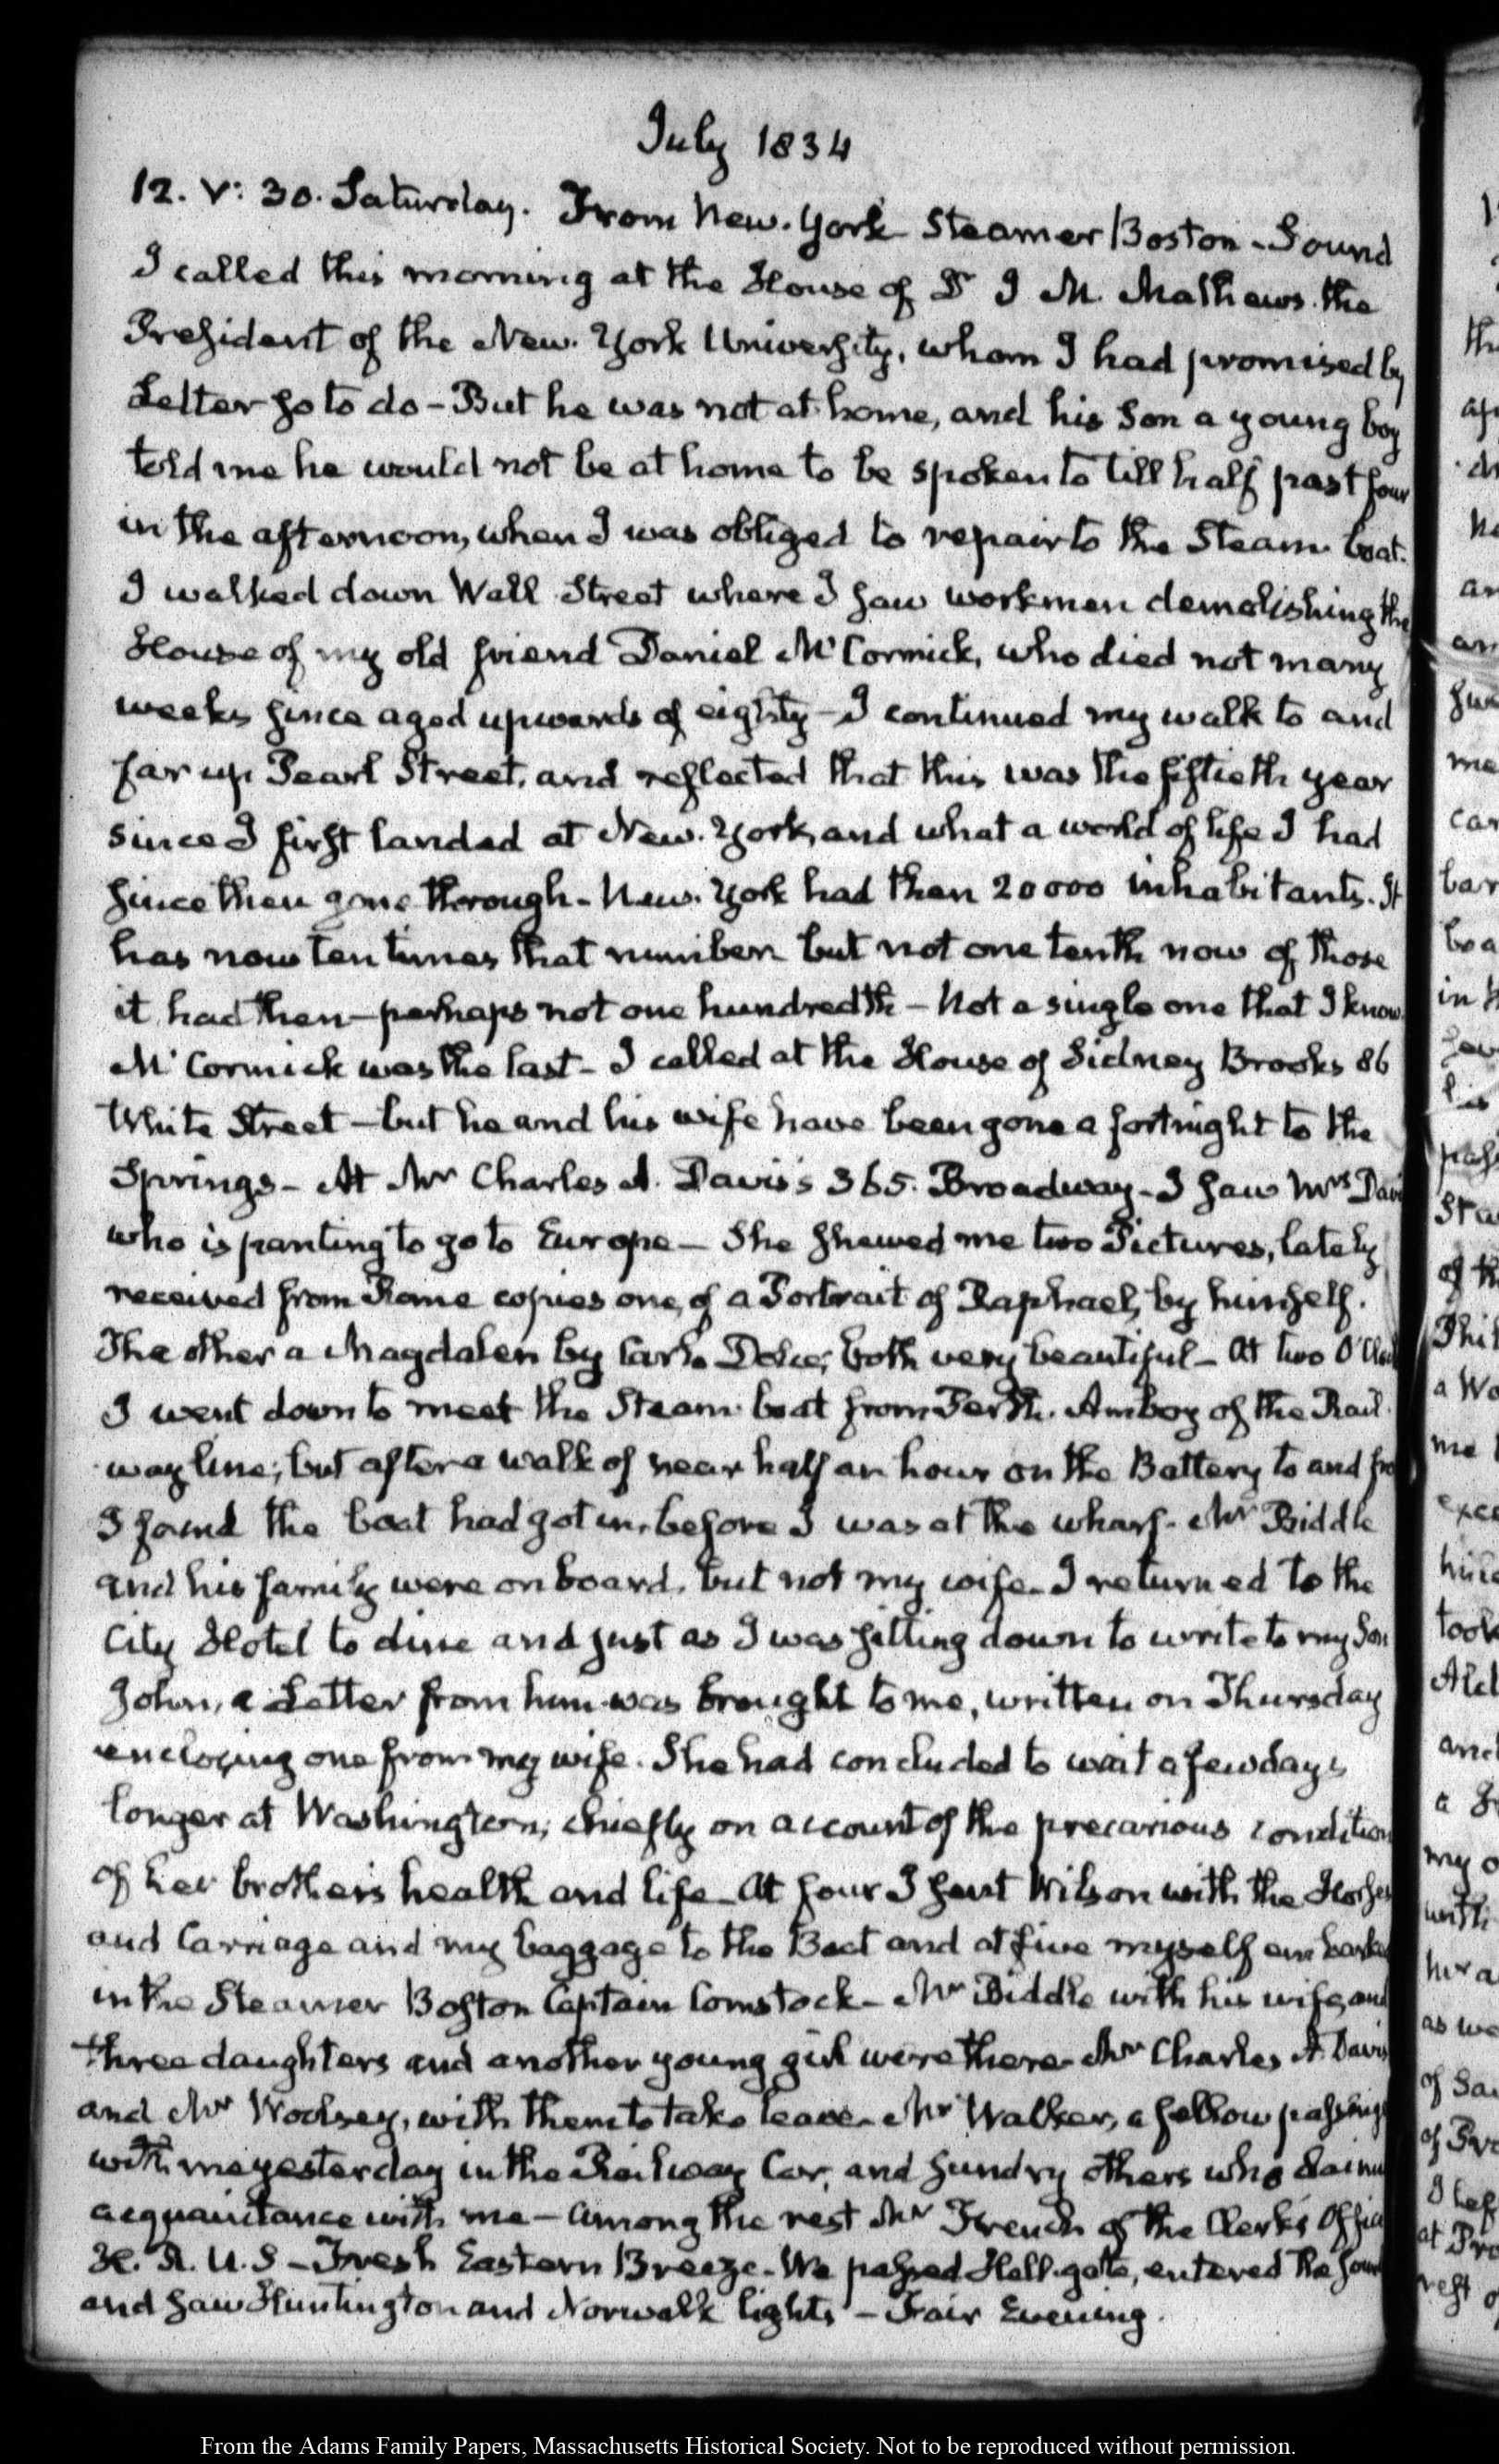 July 1834
12. V: 30. Saturday. From New-York Steamer Boston - Sound
I called this morning at the House of Dr J M. Mathews the
President of the New-York University, whom I had promised by
Letter so to do - But he was not at home, and his Son a young boy
told me he would not be at home to be spoken to till half past four
in the afternoon, when I was obliged to repair to the Steam-boat.
I walked down Wall Street where I saw workmen demolishing the
House of my old friend Daniel McCormick, who died not many
weeks since aged upwards of eighty - I continued my walk to and
far up Pearl Street, and reflected that this was the fiftieth year
since I first landed at New-York, and what a world of life I had
since then gone through - New-York had then 20000 inhabitants. It
has now ten times that number but not one tenth now of those
it had then - perhaps not one hundredth - Not a single one that I know.
McCormick was the last - I called at the House of Sidney Brooks 86
White Street - but he and his wife have been gone a fortnight to the
Springs - At Mr Charles A. Davis's 365. Broadway - I saw Mrs Davi
who is panting to go to Europe - She shewed me two Pictures, lately
received from Rome copies one, of a Portrait of Raphael, by himself.
The other a Magdalen by Carlo Dolce; both very beautiful - At two O'Clock
I went down to meet the Steam-boat from Perth-Amboy of the Rail-
way line; but after a walk of near half an hour on the Battery to and fro
I found the boat had got in, before I was at the wharf. Mr Biddle
and his family were on board, but not my wife - I returned to the
City Hotel to dine and just as I was sitting down to write to my Son
John, a Letter from him was brought to me, written on Thursday
enclosing one from my wife. She had concluded to wait a few days
longer at Washington; chiefly on account of the precarious condition
of her brother's health and life - At four I sent Wilson with the Horses
and Carriage and my baggage to the Boat and at five myself embarked
in the Steamer Boston Captain Comstock - Mr Biddle with his wife, and
three daughters and another young girl were there - Mr Charles A. Davis
and Mr Woolsey, with them to take leave - Mr Walker, a fellow passeng
with me yesterday in the Railway Car, and sundry others who claim
acquaintance with me - Among the rest Mr French of the Clerk's Offic
H. R. U. S - Fresh Eastern Breeze - We passed Hell-gate, entered the Sound
and saw Huntington and Norwalk lights - Fair Evening.
From the Adams Family Papers, Massachusetts Historical Society. Not to be reproduced without permission.